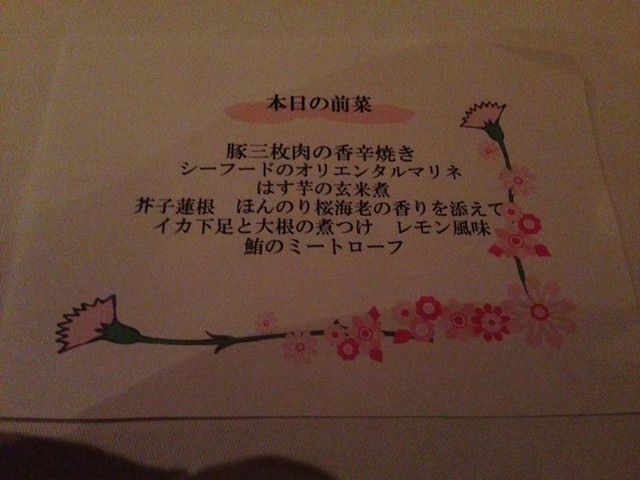 本日の前菜
豚三枚肉の香辛焼き
シーフードのオリエンタルマリネ
はす芋の玄米煮
芥子蓮根　ほんのり桜海老の香りを添えて
イカ下足と大根の煮つけ　レモン風味
鮪のミートローフ